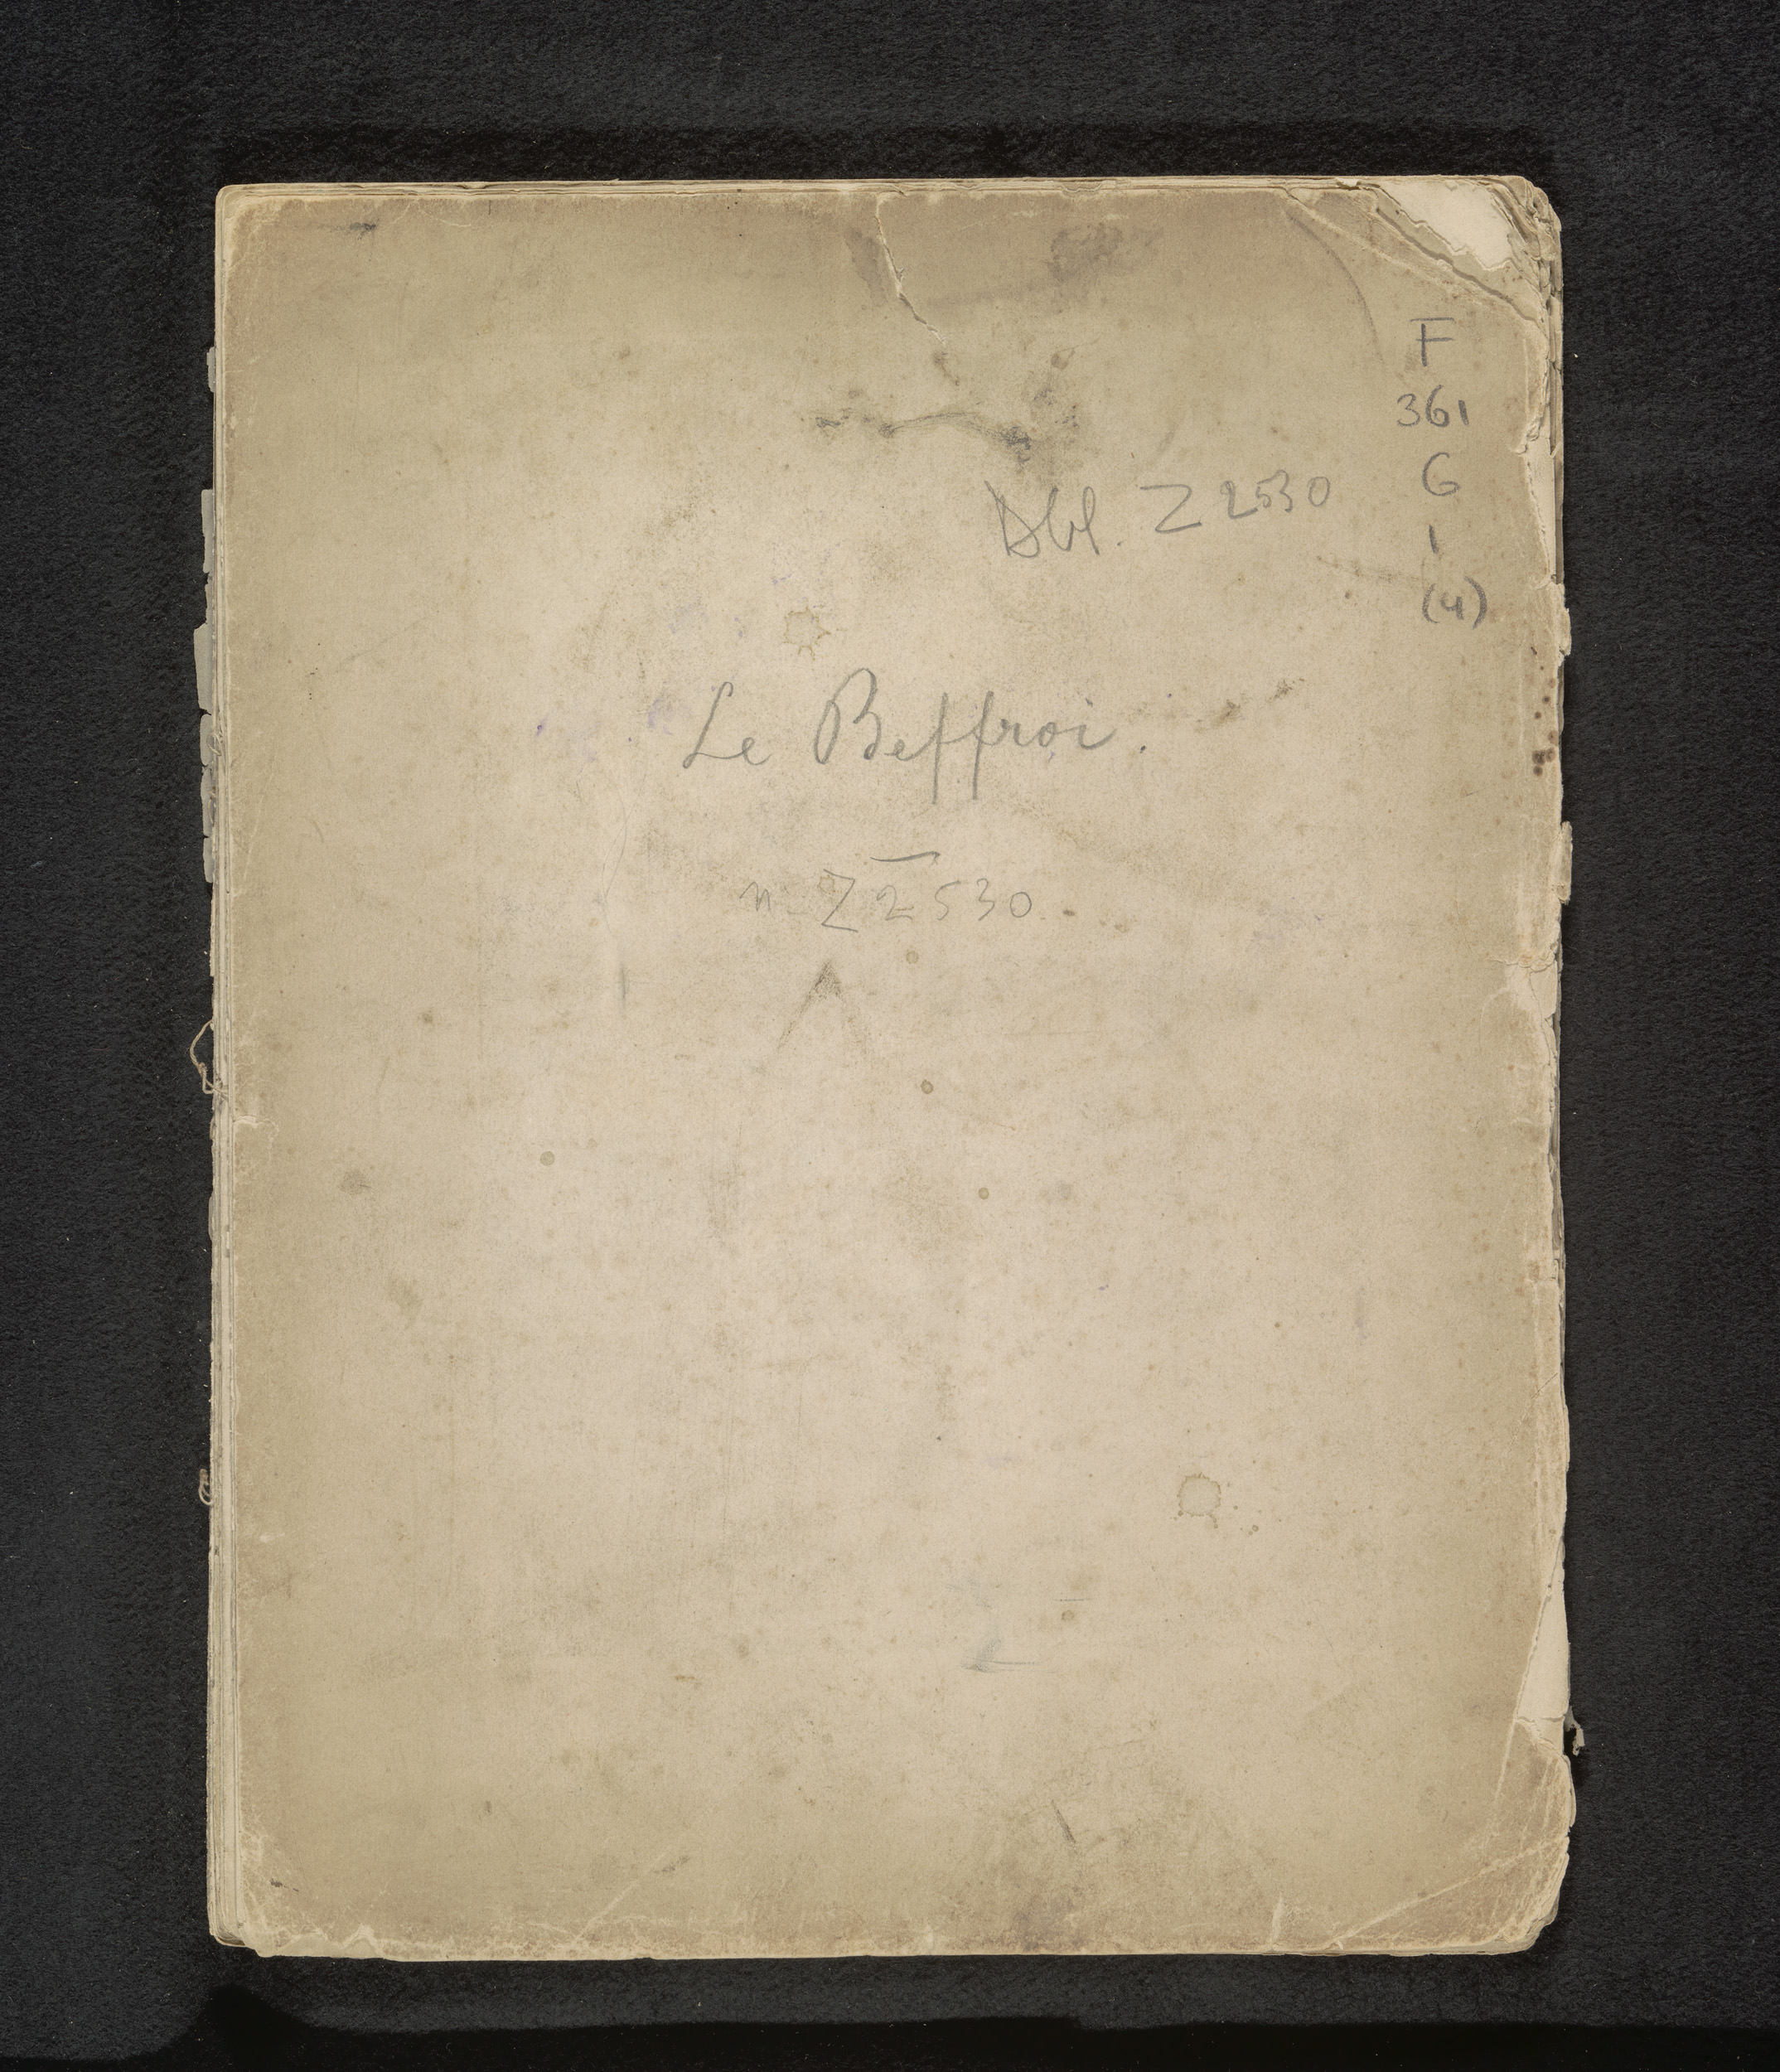 F
361
G
1
(4)
Dbl. Z 2530
Le Beffroi.
n. Z 2530.